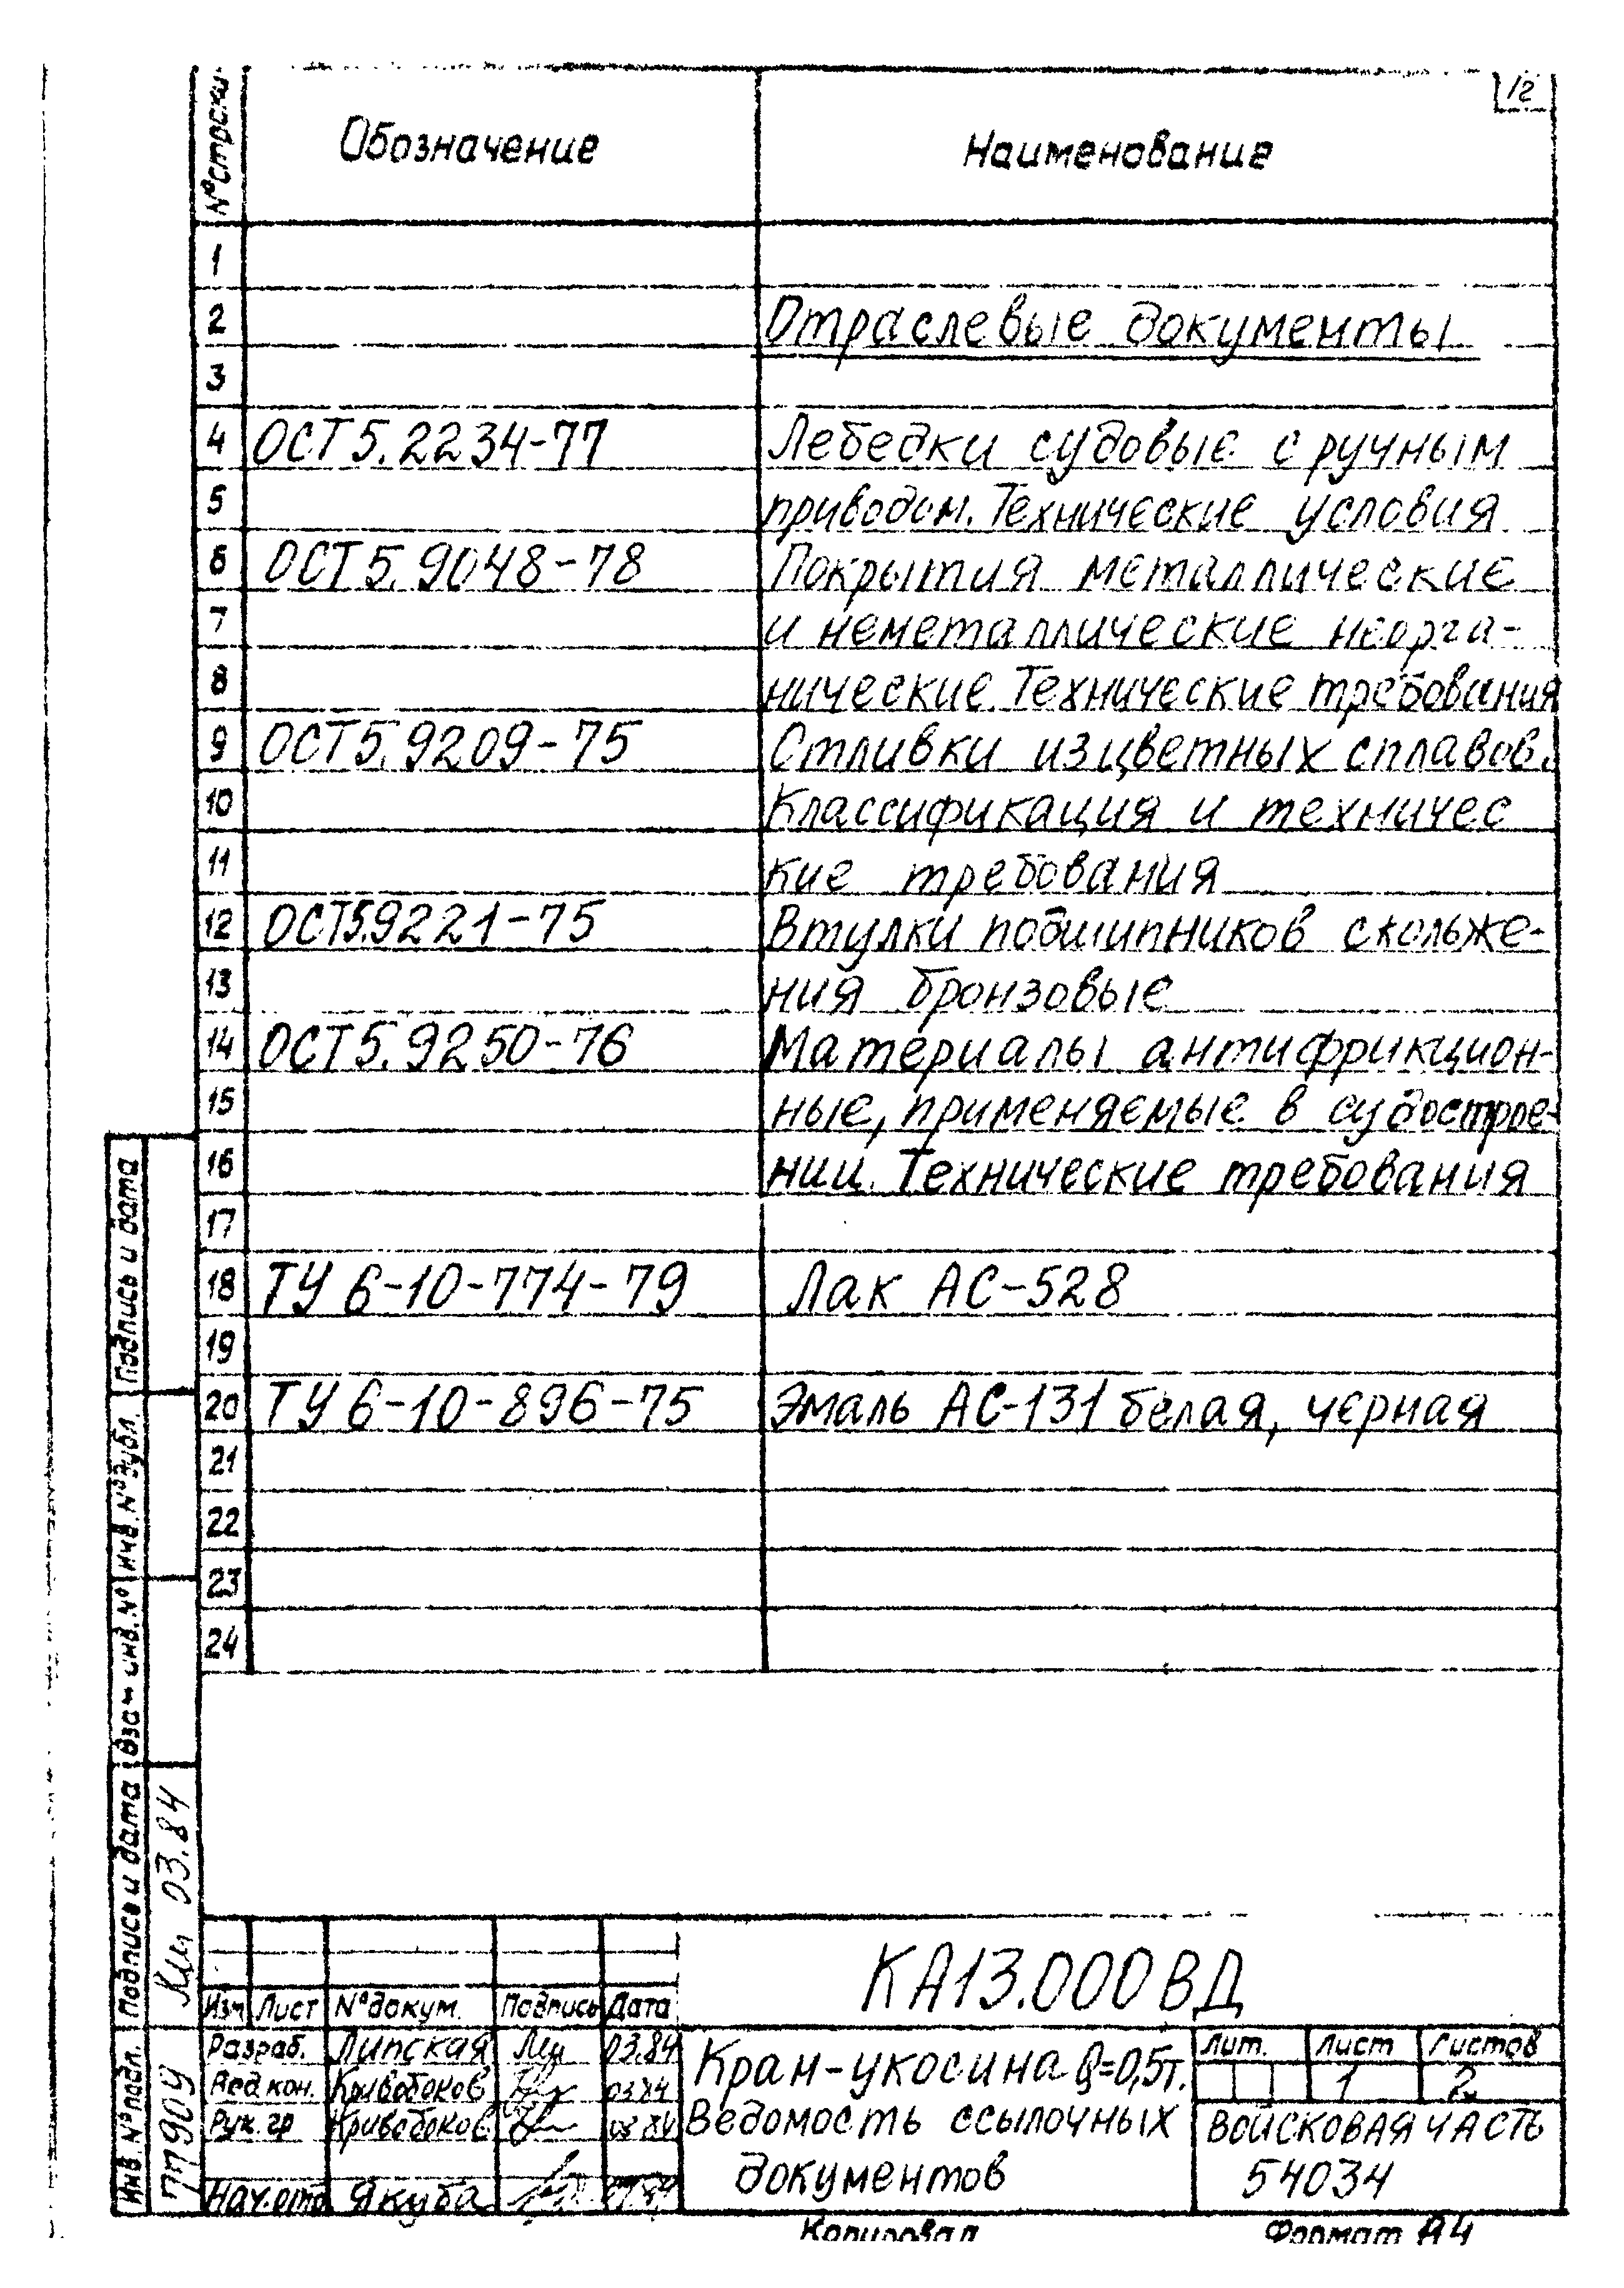 12
№ строки Обозначение Наименование
1
2 Отраслевые документы
3
4 ОСТ 5.2234-77 Лебедки судовые с ручным
5 приводом. Технические условия
6 ОСТ 5.9048-78 Покрытия металлические
7 и неметаллические неорга-
8 нические. Технические требования
9 ОСТ 5.9209-75 Отливки из цветных сплавов.
10 Классификация и техничес
11 кие требования
12 ОСТ5.9221-75 Втулки подшипников скольже-
13 ния бронзовые
14 ОСТ 5.9250-76 Материалы антифрикцион-
15 ные, применяемые в судострое-
16 нии. Технические требования
17
18 ТУ 6-10-774-79 Лак АС-528
19
20 ТУ 6-10-896-75 Эмаль АС-131 белая, черная
21
22
23
24
Подпись и дата
Инв. № дубл.
Взам инв. №
Подпись и дата 03.84
Инв. № подл.
КА13.000 ВД
Изм Лист № докум. Подпись Дата
Разраб. Липская 03.84
Вед кон. Кривобоков 03.84
Рук. гр Кривобоков 03.84
Нач. отд Якуба
Кран-укосина Q=0,5т.
Ведомость ссылочных
документов
Лит. Лист Листов
1 2
ВОЙСКОВАЯ ЧАСТЬ
54034
Копировал Формат А4